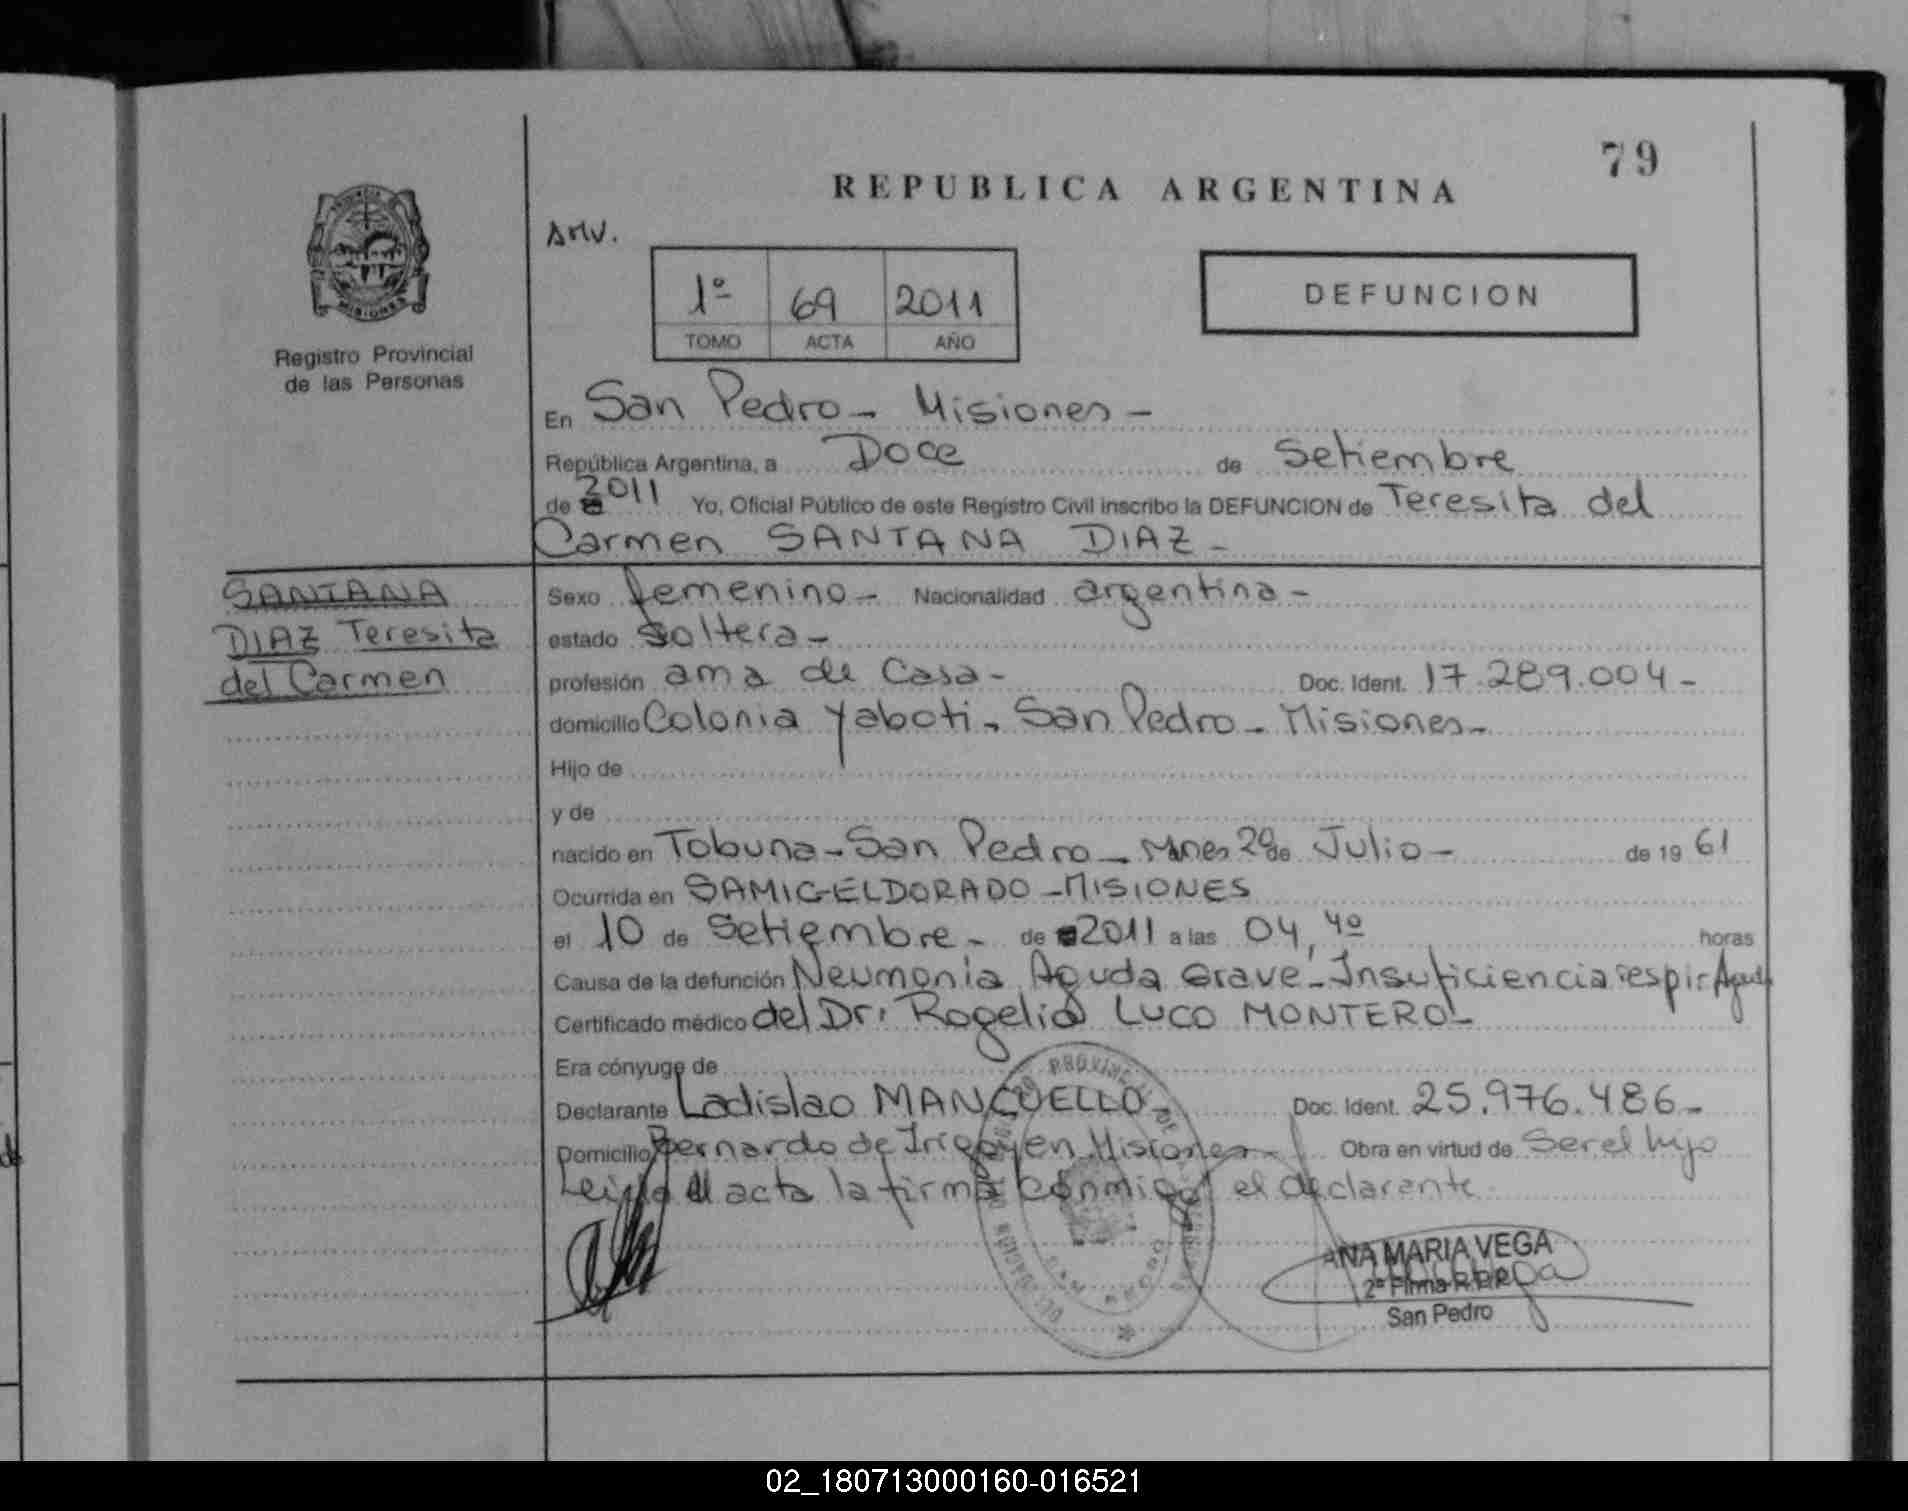 79
REPUBLICA ARGENTINA
AMV.
1º 69 2011
TOMO ACTA AÑO
DEFUNCION
PROVINCIA
MISIONES
Registro Provincial
de las Personas
En San Pedro - Misiones -
República Argentina, a Doce de Setiembre
de 2011 Yo, Oficial Público de este Registro Civil inscribo la DEFUNCION de Teresita del
Carmen SANTANA DIAZ -
SANTANA
DIAZ Teresita
del Carmen
Sexo femenino - Nacionalidad argentina -
estado Soltera -
profesión ama de Casa - Doc. Ident. 17.289.004 -
domicilio Colonia Yaboti - San Pedro - Misiones -
Hijo de
y de
nacido en Tobuna - San Pedro - Mnes 29 de Julio - de 19 61
Ocurrida en SAMIC - ELDORADO - MISIONES
el 10 de Setiembre - de 2011 a las 04,40 horas
Causa de la defunción Neumonía Aguda Grave - Insuficiencia respir Aguda
Certificado médico del Dr. Rogelio LUCO MONTERO -
Era cónyuge de
Declarante Ladislao MANCUELLO - Doc. Ident. 25.976.486 -
Domicilio Bernardo de Irigoyen Misiones - Obra en virtud de Ser el hijo
Leida el acta la firma conmigo el declarante
ANA MARIA VEGA
2ª Firma R.P.P.
San Pedro
02_180713000160-016521